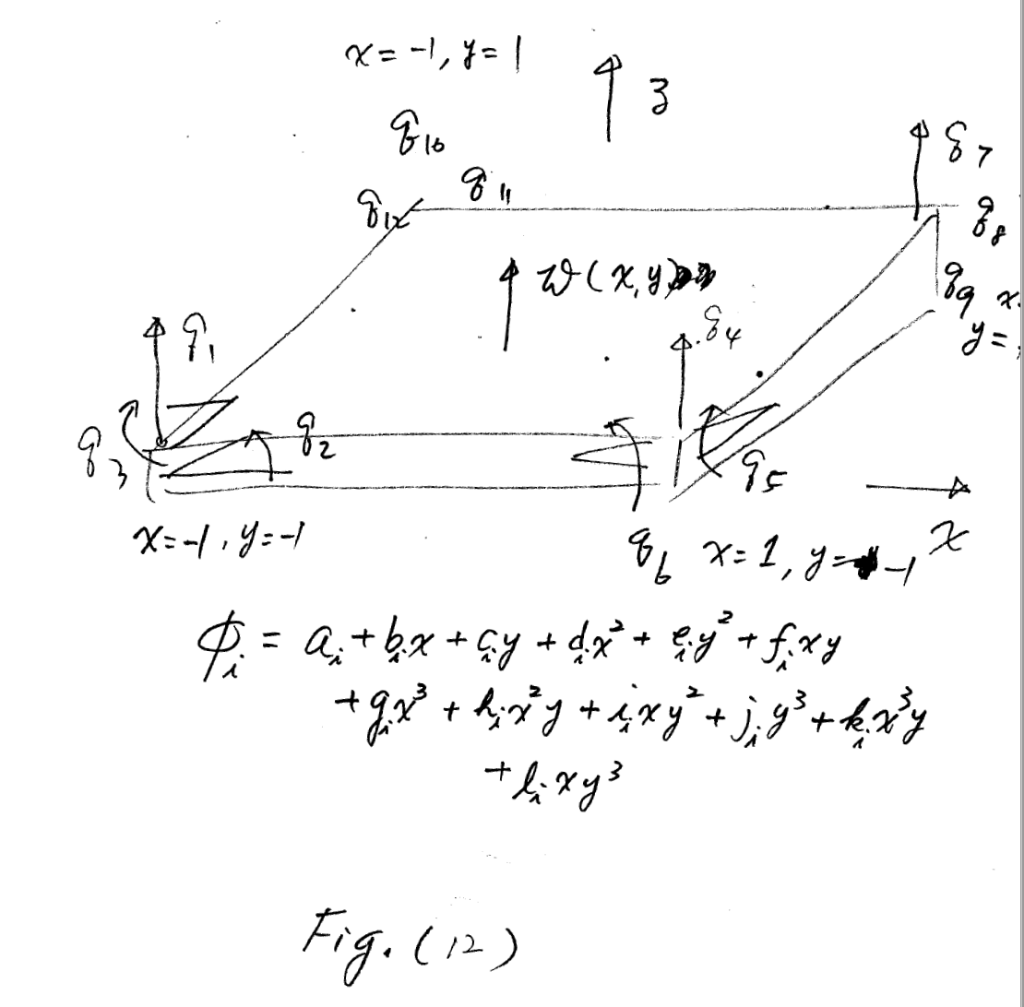 x = -1, y = 1
z
q₁₀
q₇
q₁₂ q₁₁
q₈
w(x,y)
q₉ x
y =
q₁
q₄
q₃ q₂
q₅
x=-1, y=-1
q₆ x=1, y=-1
x
ϕᵢ = aᵢ + bᵢx + cᵢy + dᵢx² + eᵢy² + fᵢxy
+ gᵢx³ + hᵢx²y + iᵢxy² + jᵢy³ + kᵢx³y
+ lᵢxy³
Fig. (12)